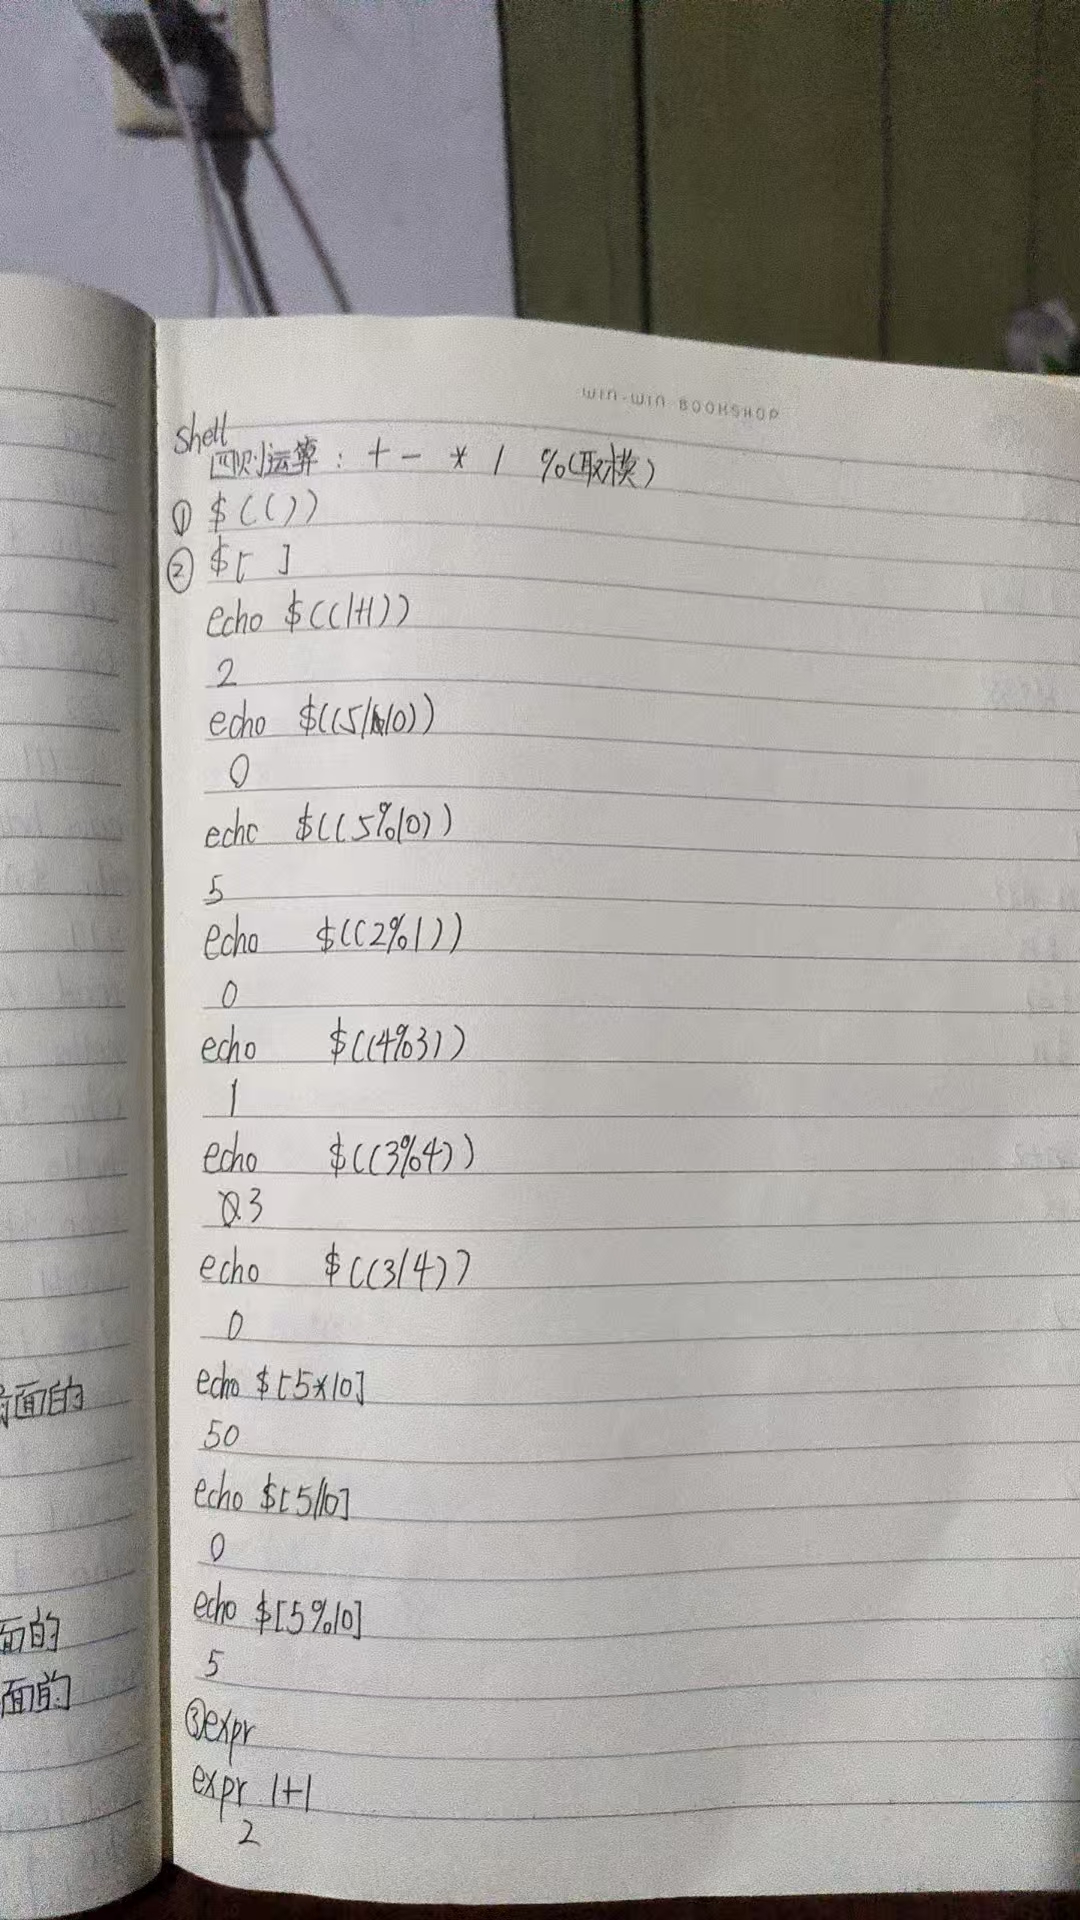 WIN-WIN BOOKSHOP
shell
四则运算：+ - * / %(取模)
① $(())
② $[ ]
echo $((1+1))
2
echo $((5/10))
0
echo $((5%10))
5
echo $((2%1))
0
echo $((4%3))
1
echo $((3%4))
3
echo $((3/4))
0
echo $[5*10]
50
echo $[5/10]
0
echo $[5%10]
5
③expr
expr 1+1
2
面的
面的
面的